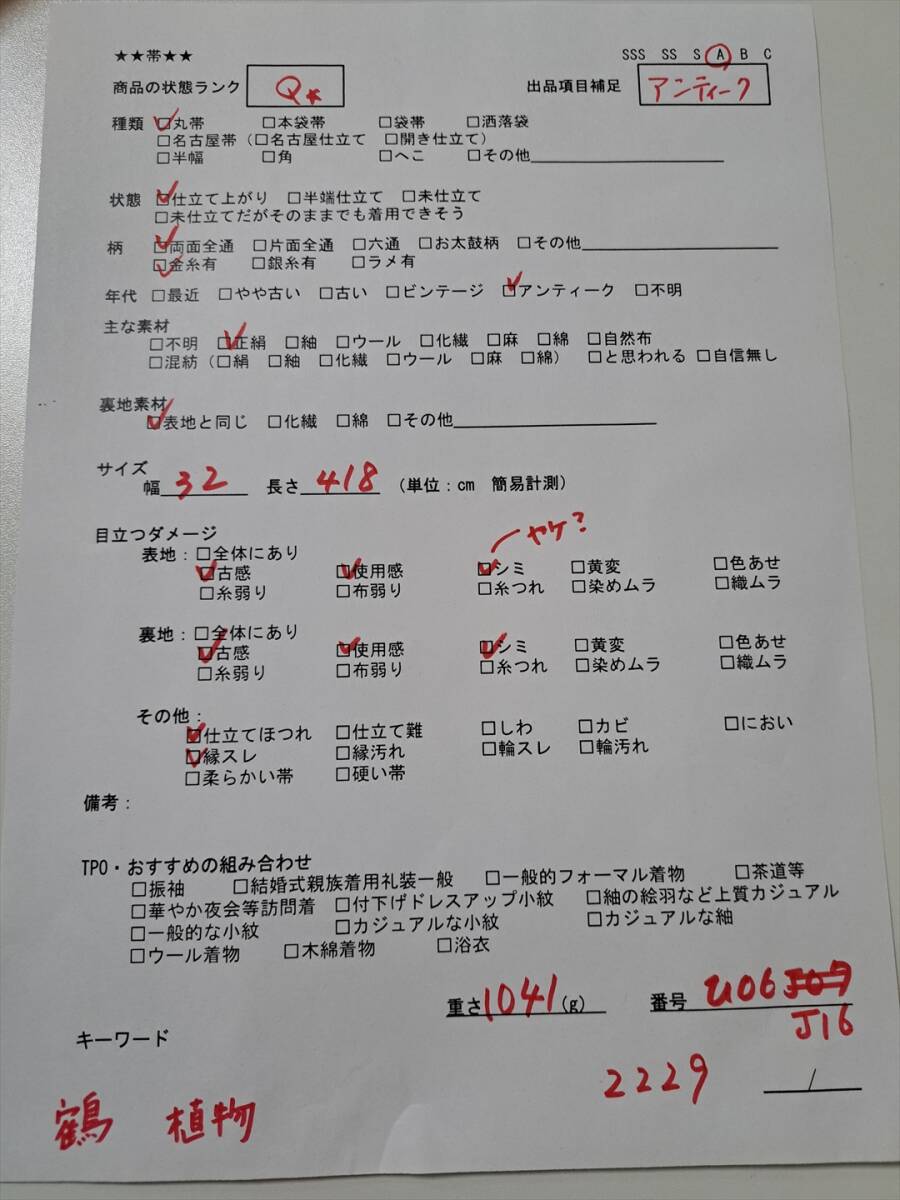 ★★帯★★
SSS SS S A B C
商品の状態ランク Q★ 出品項目補足 アンティーク
種類 ☑丸帯 □本袋帯 □袋帯 □洒落袋
□名古屋帯（□名古屋仕立て □開き仕立て）
□半幅 □角 □へこ □その他
状態 ☑仕立て上がり □半端仕立て □未仕立て
□未仕立てだがそのままでも着用できそう
柄 ☑両面全通 □片面全通 □六通 □お太鼓柄 □その他
☑金糸有 □銀糸有 □ラメ有
年代 □最近 □やや古い □古い □ビンテージ ☑アンティーク □不明
主な素材
□不明 ☑正絹 □紬 □ウール □化繊 □麻 □綿 □自然布
□混紡（□絹 □紬 □化繊 □ウール □麻 □綿） □と思われる □自信無し
裏地素材
☑表地と同じ □化繊 □綿 □その他
サイズ
幅 32 長さ 418 （単位：cm 簡易計測）
目立つダメージ
ヤケ？
表地：□全体にあり
☑古感 ☑使用感 ☑シミ □黄変 □色あせ
□糸弱り □布弱り □糸つれ □染めムラ □織ムラ
裏地：□全体にあり
☑古感 ☑使用感 ☑シミ □黄変 □色あせ
□糸弱り □布弱り □糸つれ □染めムラ □織ムラ
その他：
☑仕立てほつれ □仕立て難 □しわ □カビ □におい
☑縁スレ □縁汚れ □輪スレ □輪汚れ
□柔らかい帯 □硬い帯
備考：
TPO・おすすめの組み合わせ
□振袖 □結婚式親族着用礼装一般 □一般的フォーマル着物 □茶道等
□華やか夜会等訪問着 □付下げドレスアップ小紋 □紬の絵羽など上質カジュアル
□一般的な小紋 □カジュアルな小紋 □カジュアルな紬
□ウール着物 □木綿着物 □浴衣
重さ 1041 (g) 番号 U06 J09
J16
キーワード
2229 /
鶴 植物